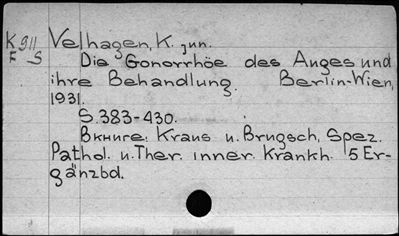 K 911 Velhagen, K. jun.
F S Die Gonorrhöe des Auges und
ihre Behandlung. Berlin-Wien,
1931.
S. 383-430.
В книге: Kraus u. Brugsch, Spez.
Pathol. u. Ther. inner. Krankh. 5 Er-
gänzbd.